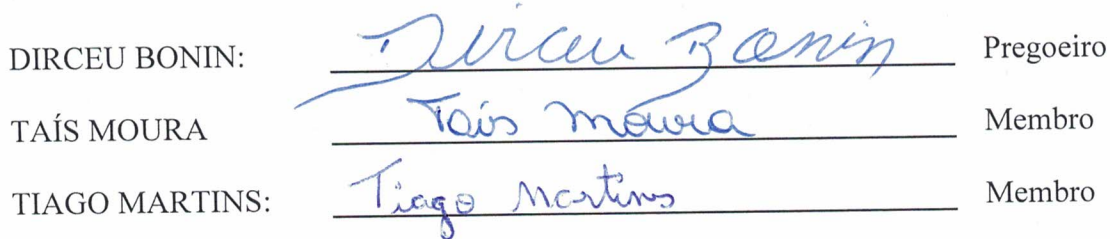 DIRCEU BONIN: Dirceu Bonin Pregoeiro
TAÍS MOURA Taís Moura Membro
TIAGO MARTINS: Tiago Martins Membro